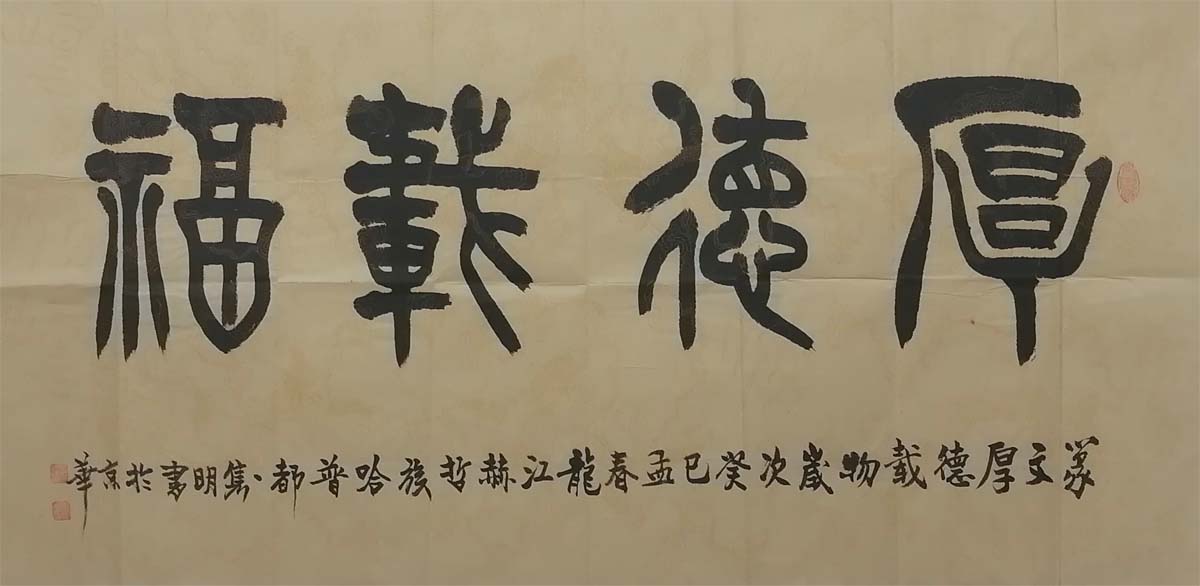 厚德載福
篆文厚德載物歲次癸巳孟春龍江赫哲族哈普都、隽明書於京華